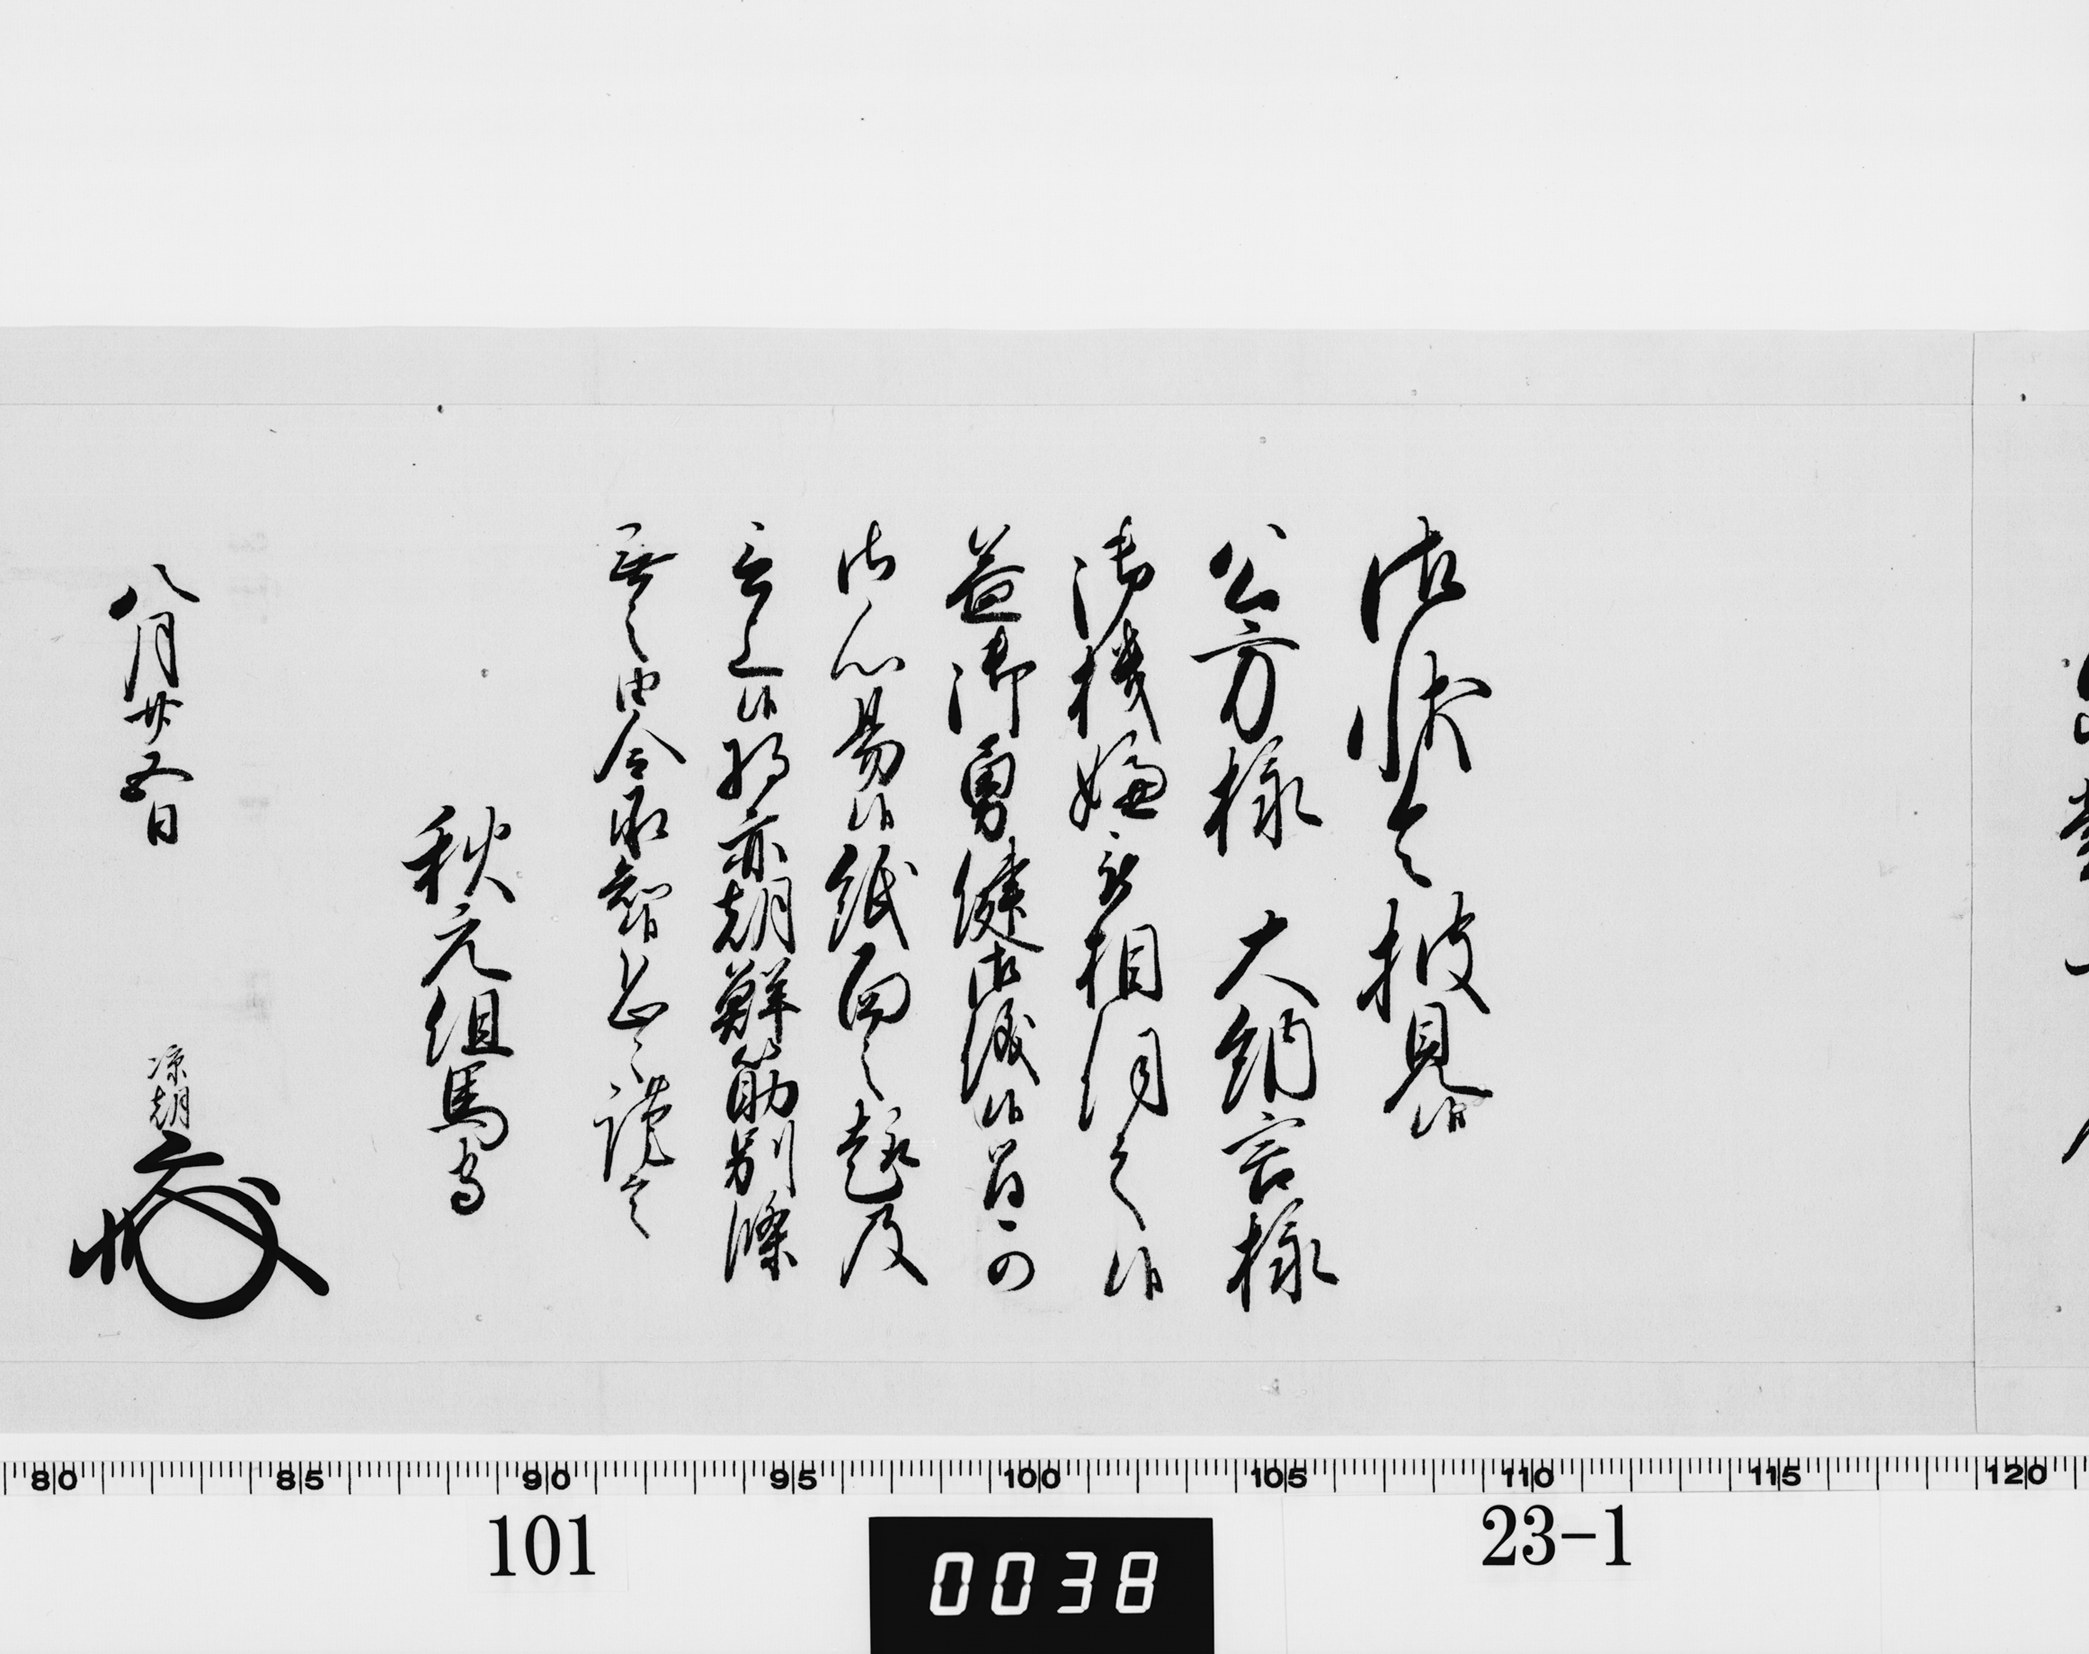 御状令披見候
公方様　大納言様
御機嫌被相伺之候
益御勇健御儀候間可
御心易候紙面之趣及
言上候将亦朝鮮筋別條
無之由令承知候恐々謹言
秋元但馬守
八月廿五日
凉朝
80 85 90 95 100 105 110 115 120
101
0038
23-1